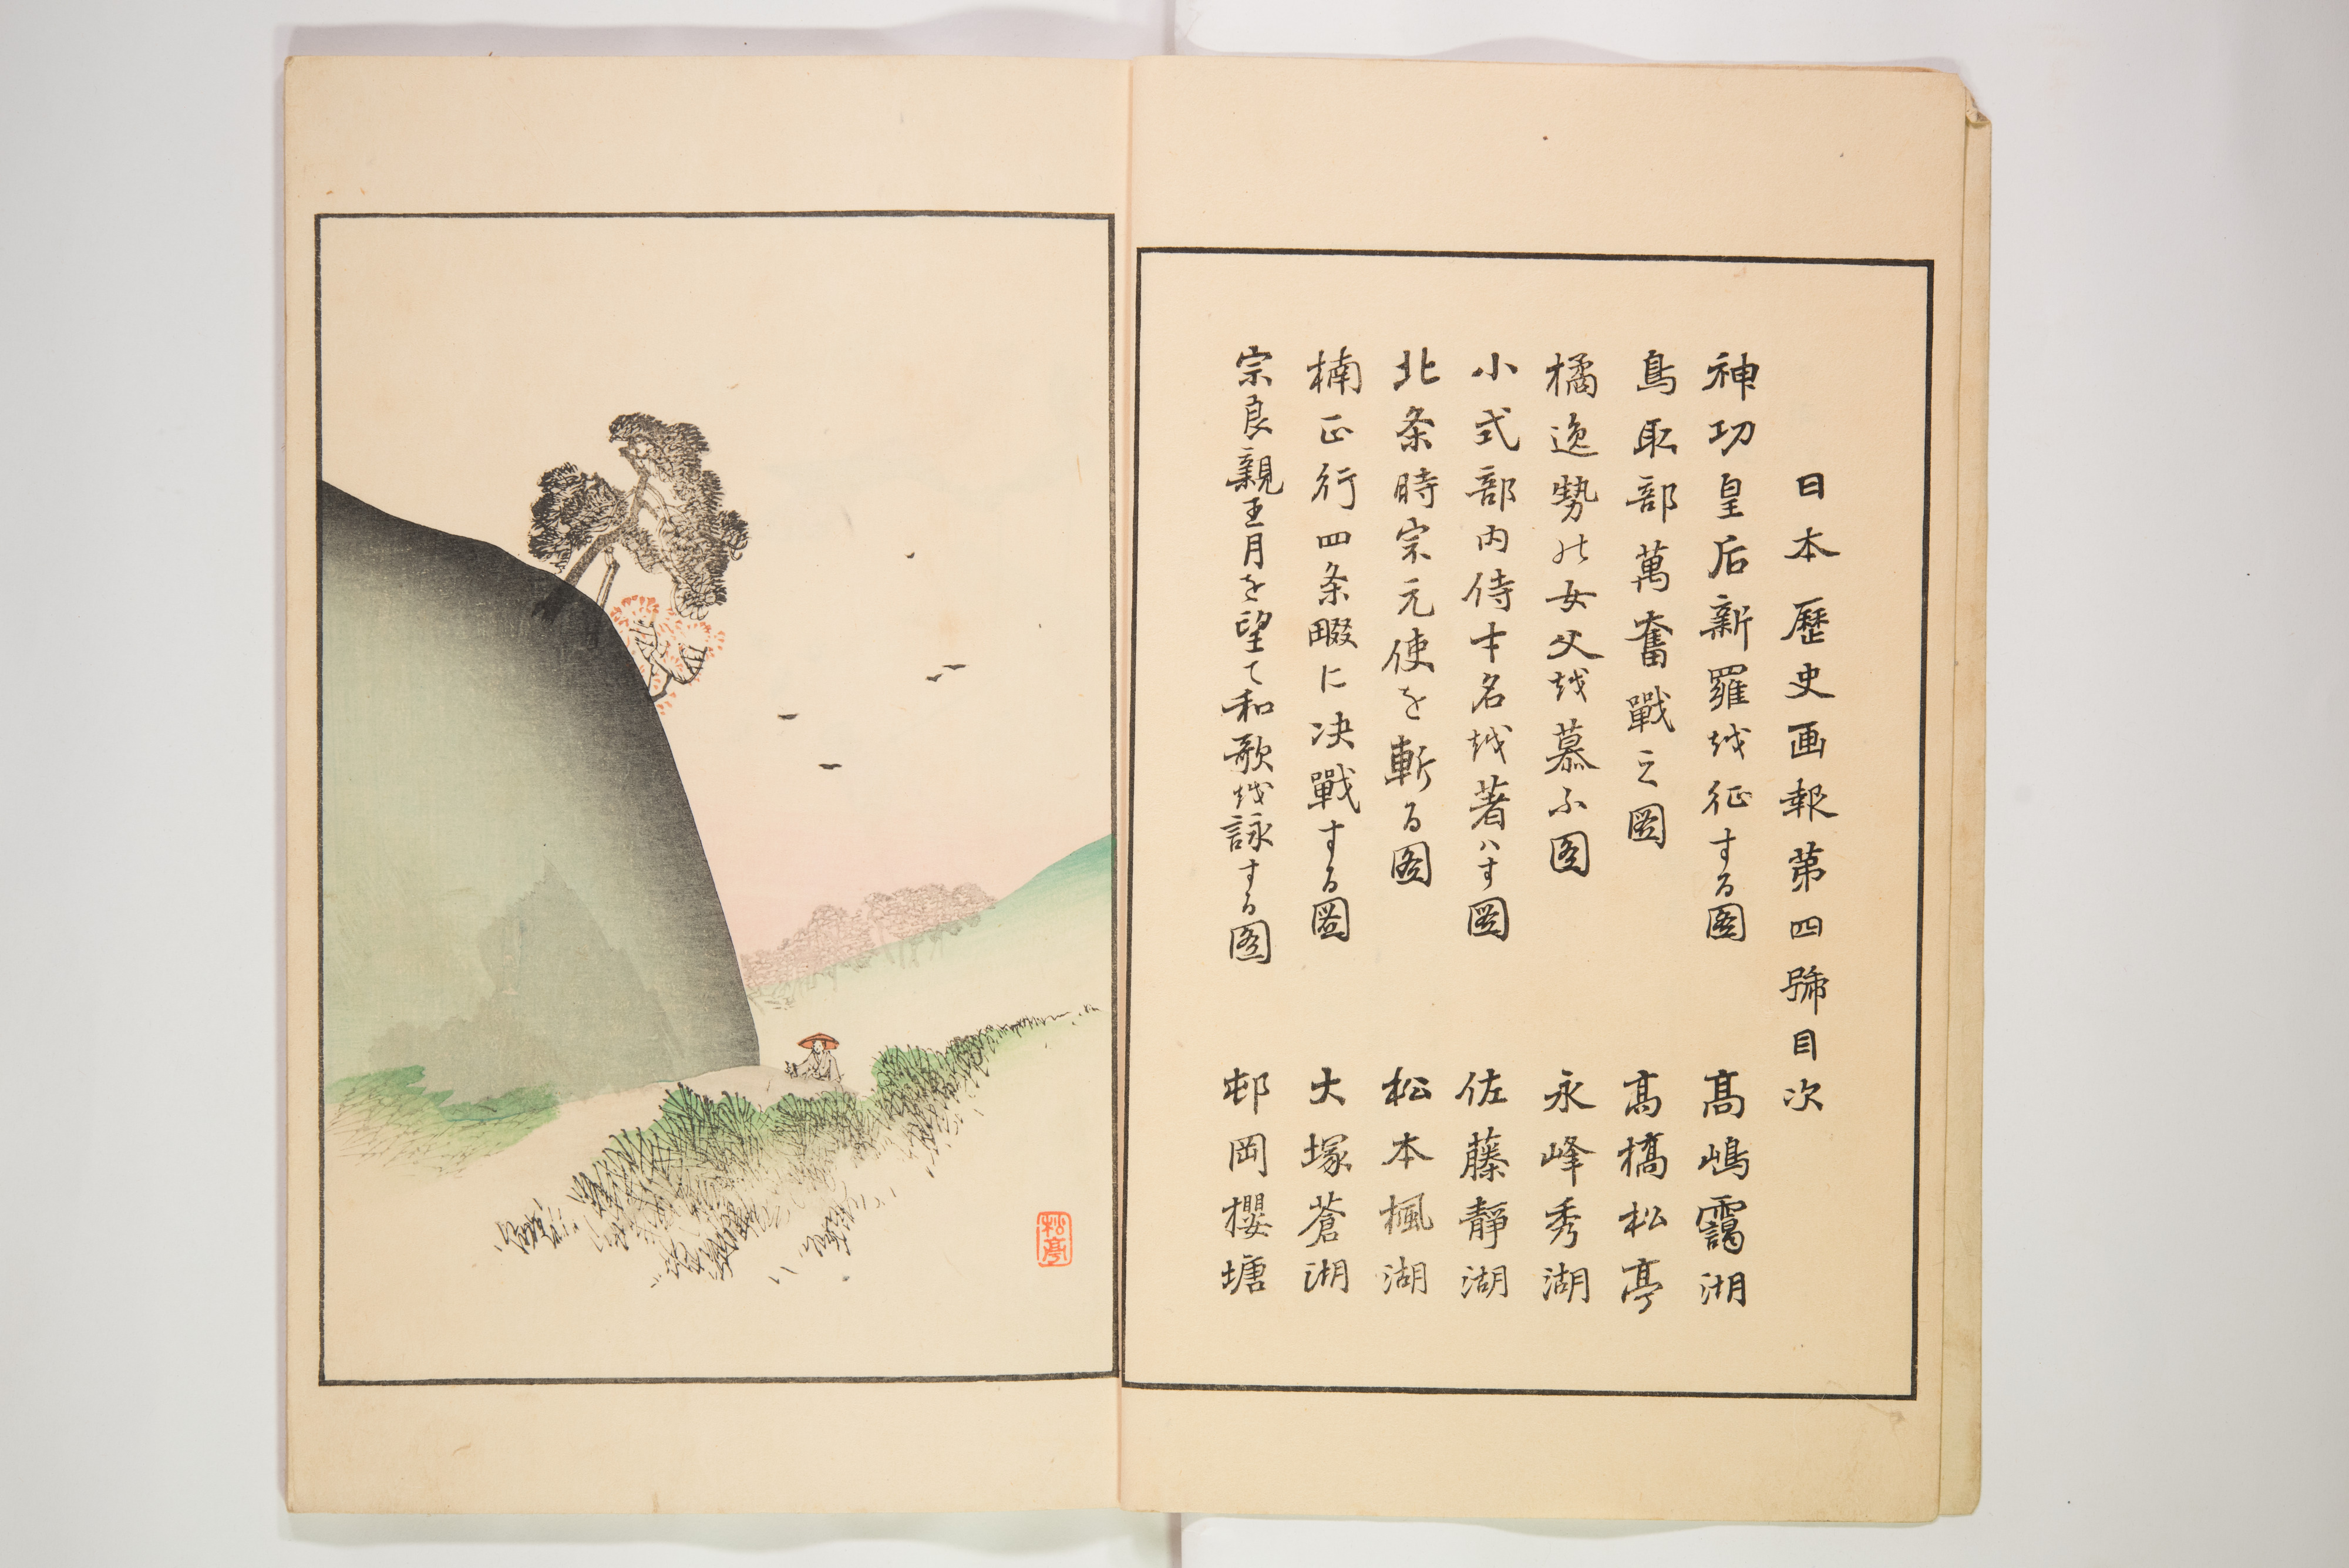 日本歴史画報第四號目次
神功皇后新羅越征する圖 高嶋靄湖
鳥取部萬奮戰之圖 高橋松亭
橘逸勢の女父越慕ふ图 永峰秀湖
小式部内侍才名越著ハす圖 佐藤靜湖
北条時宗元使を斬る图 松本楓湖
楠正行四条畷に决戰する圖 大塚蒼湖
宗良親王月を望て和歌越詠する图 邨岡櫻塘
松亭